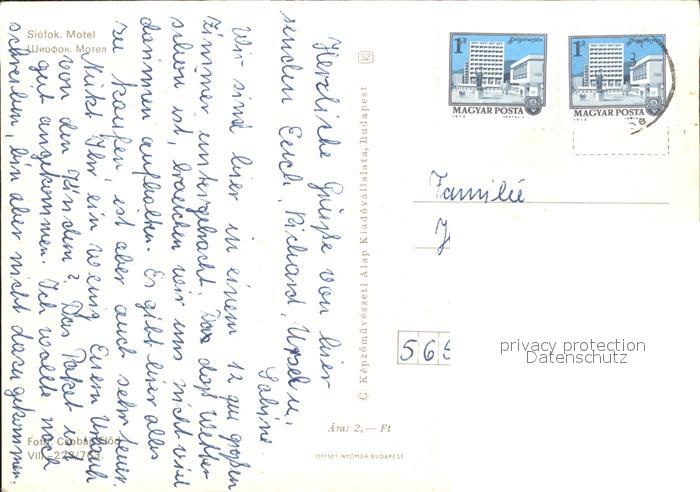 Siófok. Motel
Шиофок. Мотел
Herzliche Grüße von hier
senden Euch, Richard, Ursel u.
Sabine.
Wir sind hier in einem 12 qm großen
Zimmer untergebracht. Da das Wetter
schön ist, brauchen wir uns nicht viel
darinnen aufhalten. Es gibt hier alles
zu kaufen, ist aber auch sehr teuer.
Nützt Ihr ein wenig Euern Urlaub
von den Kindern? Das Paket ist
gut angekommen. Ich wollte noch
schreiben, bin aber nicht dazu gekommen.
Foto: Csobaji Előd
VIII.
© Képzőművészeti Alap Kiadóvállalata, Budapest
Ára: 2,— Ft
OFFSET-NYOMDA BUDAPEST
1 Ft
Salgótarján
MAGYAR POSTA
1973
1 Ft
Salgótarján
MAGYAR POSTA
1973
Familie
565
privacy protection
Datenschutz